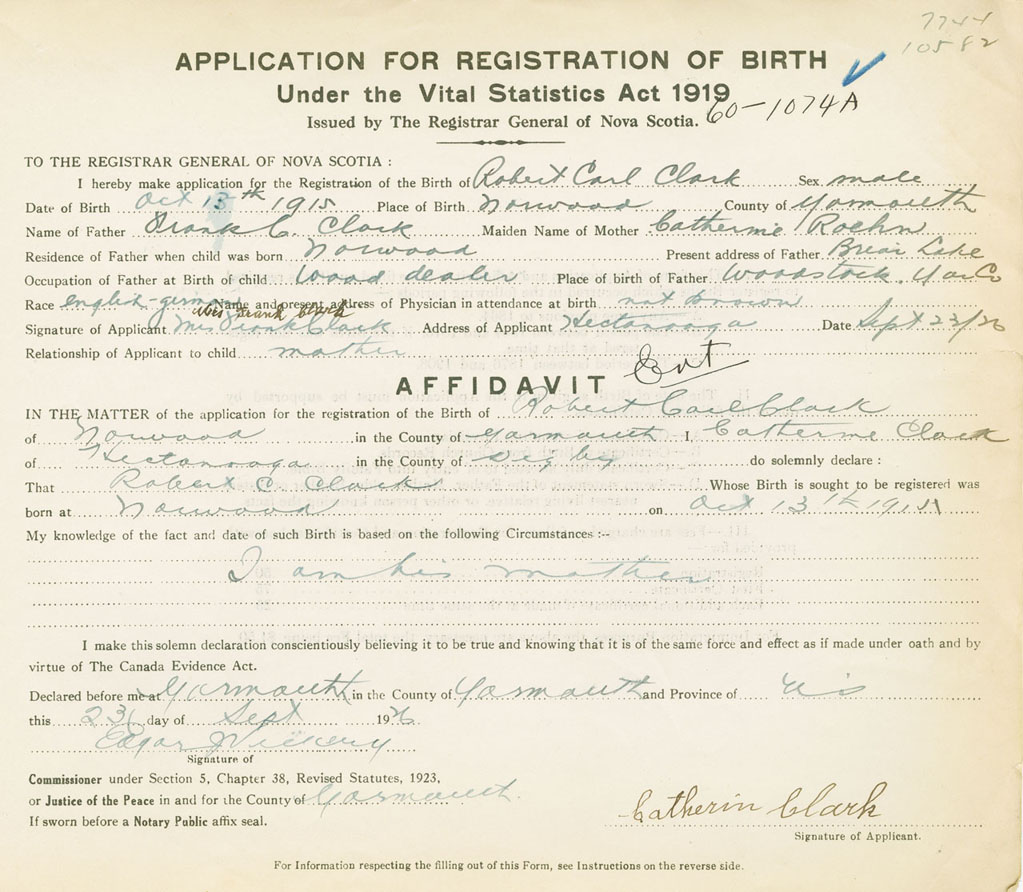 7744
10582
APPLICATION FOR REGISTRATION OF BIRTH
Under the Vital Statistics Act 1919
60-1074A
Issued by The Registrar General of Nova Scotia.
TO THE REGISTRAR GENERAL OF NOVA SCOTIA :
I hereby make application for the Registration of the Birth of Robert Carl Clark Sex male
Date of Birth Oct 13th 1915 Place of Birth Norwood County of Yarmouth
Name of Father Frank C. Clark Maiden Name of Mother Catherine Roehn
Residence of Father when child was born Norwood Present address of Father Briar Lake
Occupation of Father at Birth of child Wood dealer Place of birth of Father Woodstock, Yar Co
Race english-german Name and present address of Physician in attendance at birth not known
Mrs Frank Clark
Signature of Applicant Mrs Frank Clark Address of Applicant Hectanooga Date Sept 23/26
Relationship of Applicant to child mother
AFFIDAVIT Ent
IN THE MATTER of the application for the registration of the Birth of Robert Carl Clark
of Norwood in the County of Yarmouth I, Catherine Clark
of Hectanooga in the County of Digby do solemnly declare :
That Robert C. Clark Whose Birth is sought to be registered was
born at Norwood on Oct 13th 1915
My knowledge of the fact and date of such Birth is based on the following Circumstances :--
I am his mother
I make this solemn declaration conscientiously believing it to be true and knowing that it is of the same force and effect as if made under oath and by
virtue of The Canada Evidence Act.
Declared before me at Yarmouth in the County of Yarmouth and Province of NS
this 23 day of Sept 1926
Edgar J Vickery
Signature of
Commissioner under Section 5, Chapter 38, Revised Statutes, 1923,
or Justice of the Peace in and for the County of Yarmouth.
If sworn before a Notary Public affix seal.
Catherin Clark
Signature of Applicant.
For Information respecting the filling out of this Form, see Instructions on the reverse side.